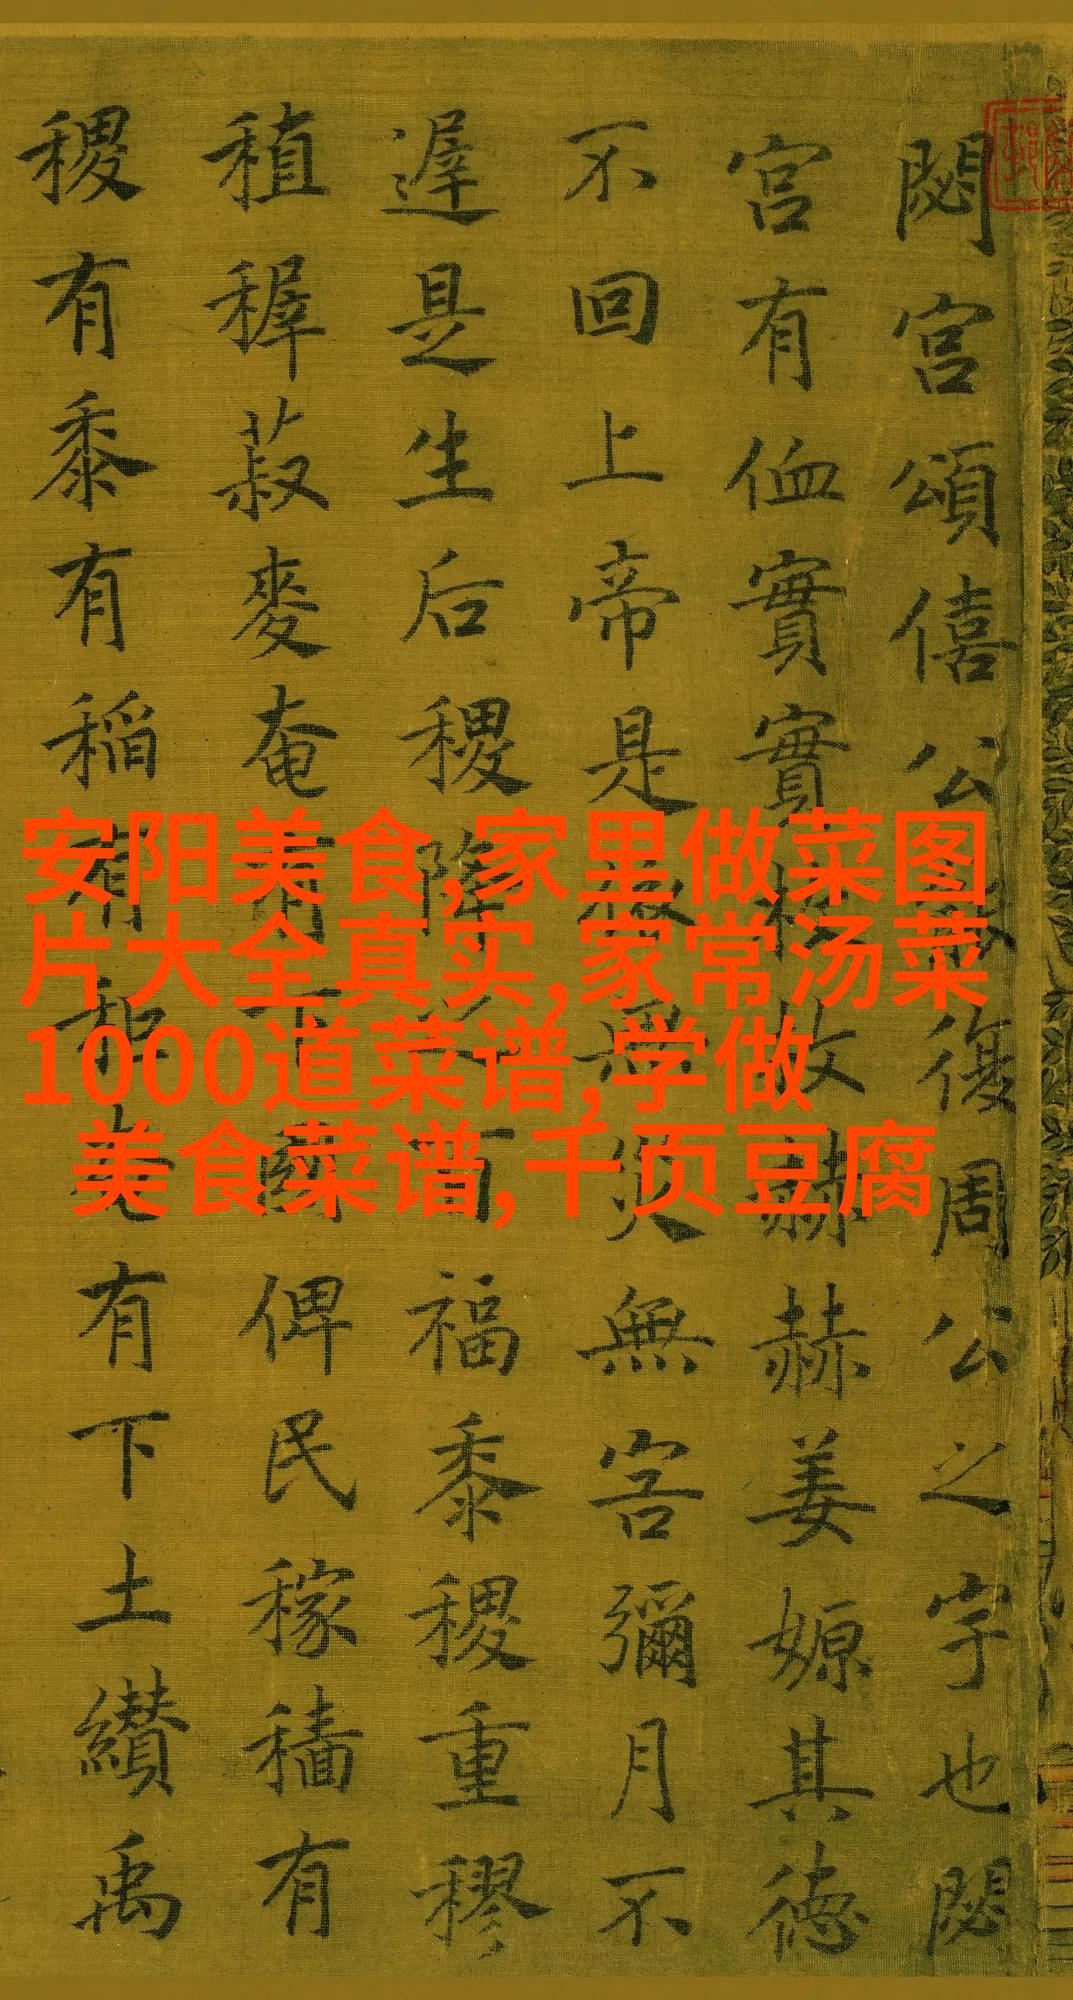 閟宮頌僖公能復周公之宇也閟
宮有侐實實枚枚赫赫姜嫄其德
不回上帝是依無災無害彌月不
遟是生后稷降之百福黍稷重穋
稙稺菽麥奄有下國俾民稼穡有
稷有黍有稲有秬奄有下土纘禹
安阳美食,家里做菜图
片大全真实,家常汤菜
1000道菜谱,学做
美食菜谱,千页豆腐